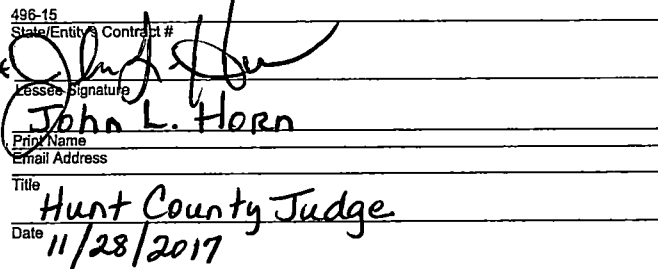 496-15
State/Entity's Contract #
Lessee Signature
John L. Horn
Print Name
Email Address
Title
Hunt County Judge
Date 11/28/2017